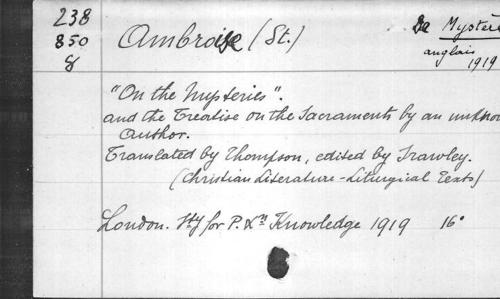 238
850
8
Ambroise (St.)
De Mystere
anglais
1919
"On the Mysteries".
and the Treatise on the Sacraments by an unknow
author.
Translated by Thompson, edited by Srawley.
(Christian Literature - Liturgical Texts)
London. Sty for P. Xn Knowledge 1919 16°